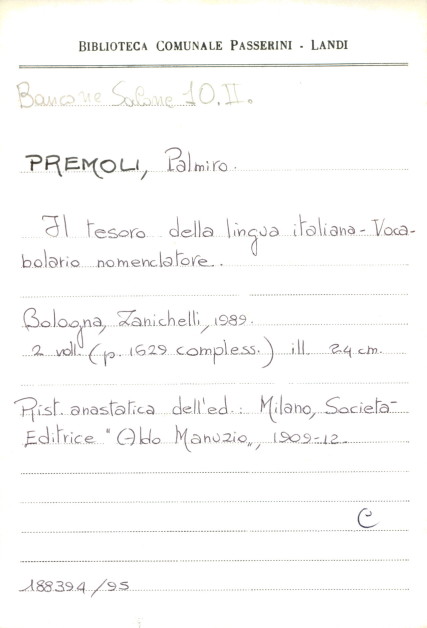 BIBLIOTECA COMUNALE PASSERINI - LANDI
Bancone Salone 10.II.
PREMOLI, Palmiro.
Il tesoro della lingua italiana - Voca-
bolario nomenclatore..
Bologna, Zanichelli, 1989.
2 voll. (p. 1629 compless.) ill. 24 cm.
Rist. anastatica dell'ed.: Milano, Società
Editrice "Aldo Manuzio", 1909-12.
C
188394/95